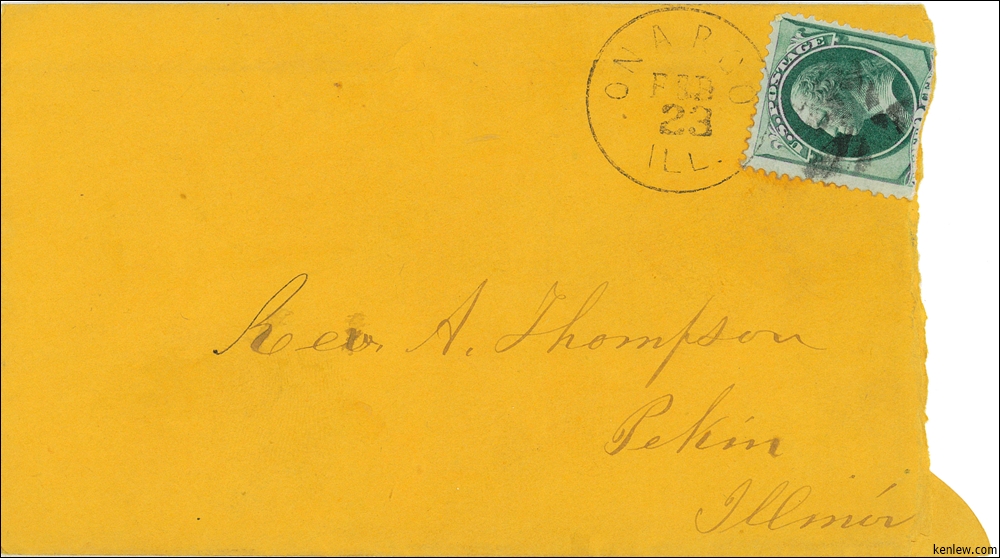 ONARGO
FEB
23
ILL.
U.S. POSTAGE
Rev. A. Thompson
Pekin
Illinois
kenlew.com